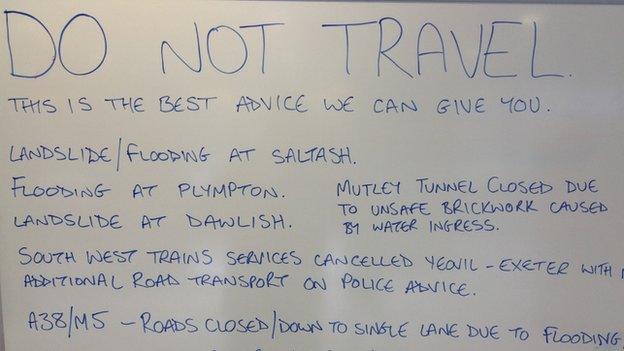 DO NOT TRAVEL.
THIS IS THE BEST ADVICE WE CAN GIVE YOU.
LANDSLIDE/FLOODING AT SALTASH.
FLOODING AT PLYMPTON.
LANDSLIDE AT DAWLISH.
MUTLEY TUNNEL CLOSED DUE
TO UNSAFE BRICKWORK CAUSED
BY WATER INGRESS.
SOUTH WEST TRAINS SERVICES CANCELLED YEOVIL - EXETER WITH
ADDITIONAL ROAD TRANSPORT ON POLICE ADVICE.
A38/M5 - ROADS CLOSED/DOWN TO SINGLE LANE DUE TO FLOODING